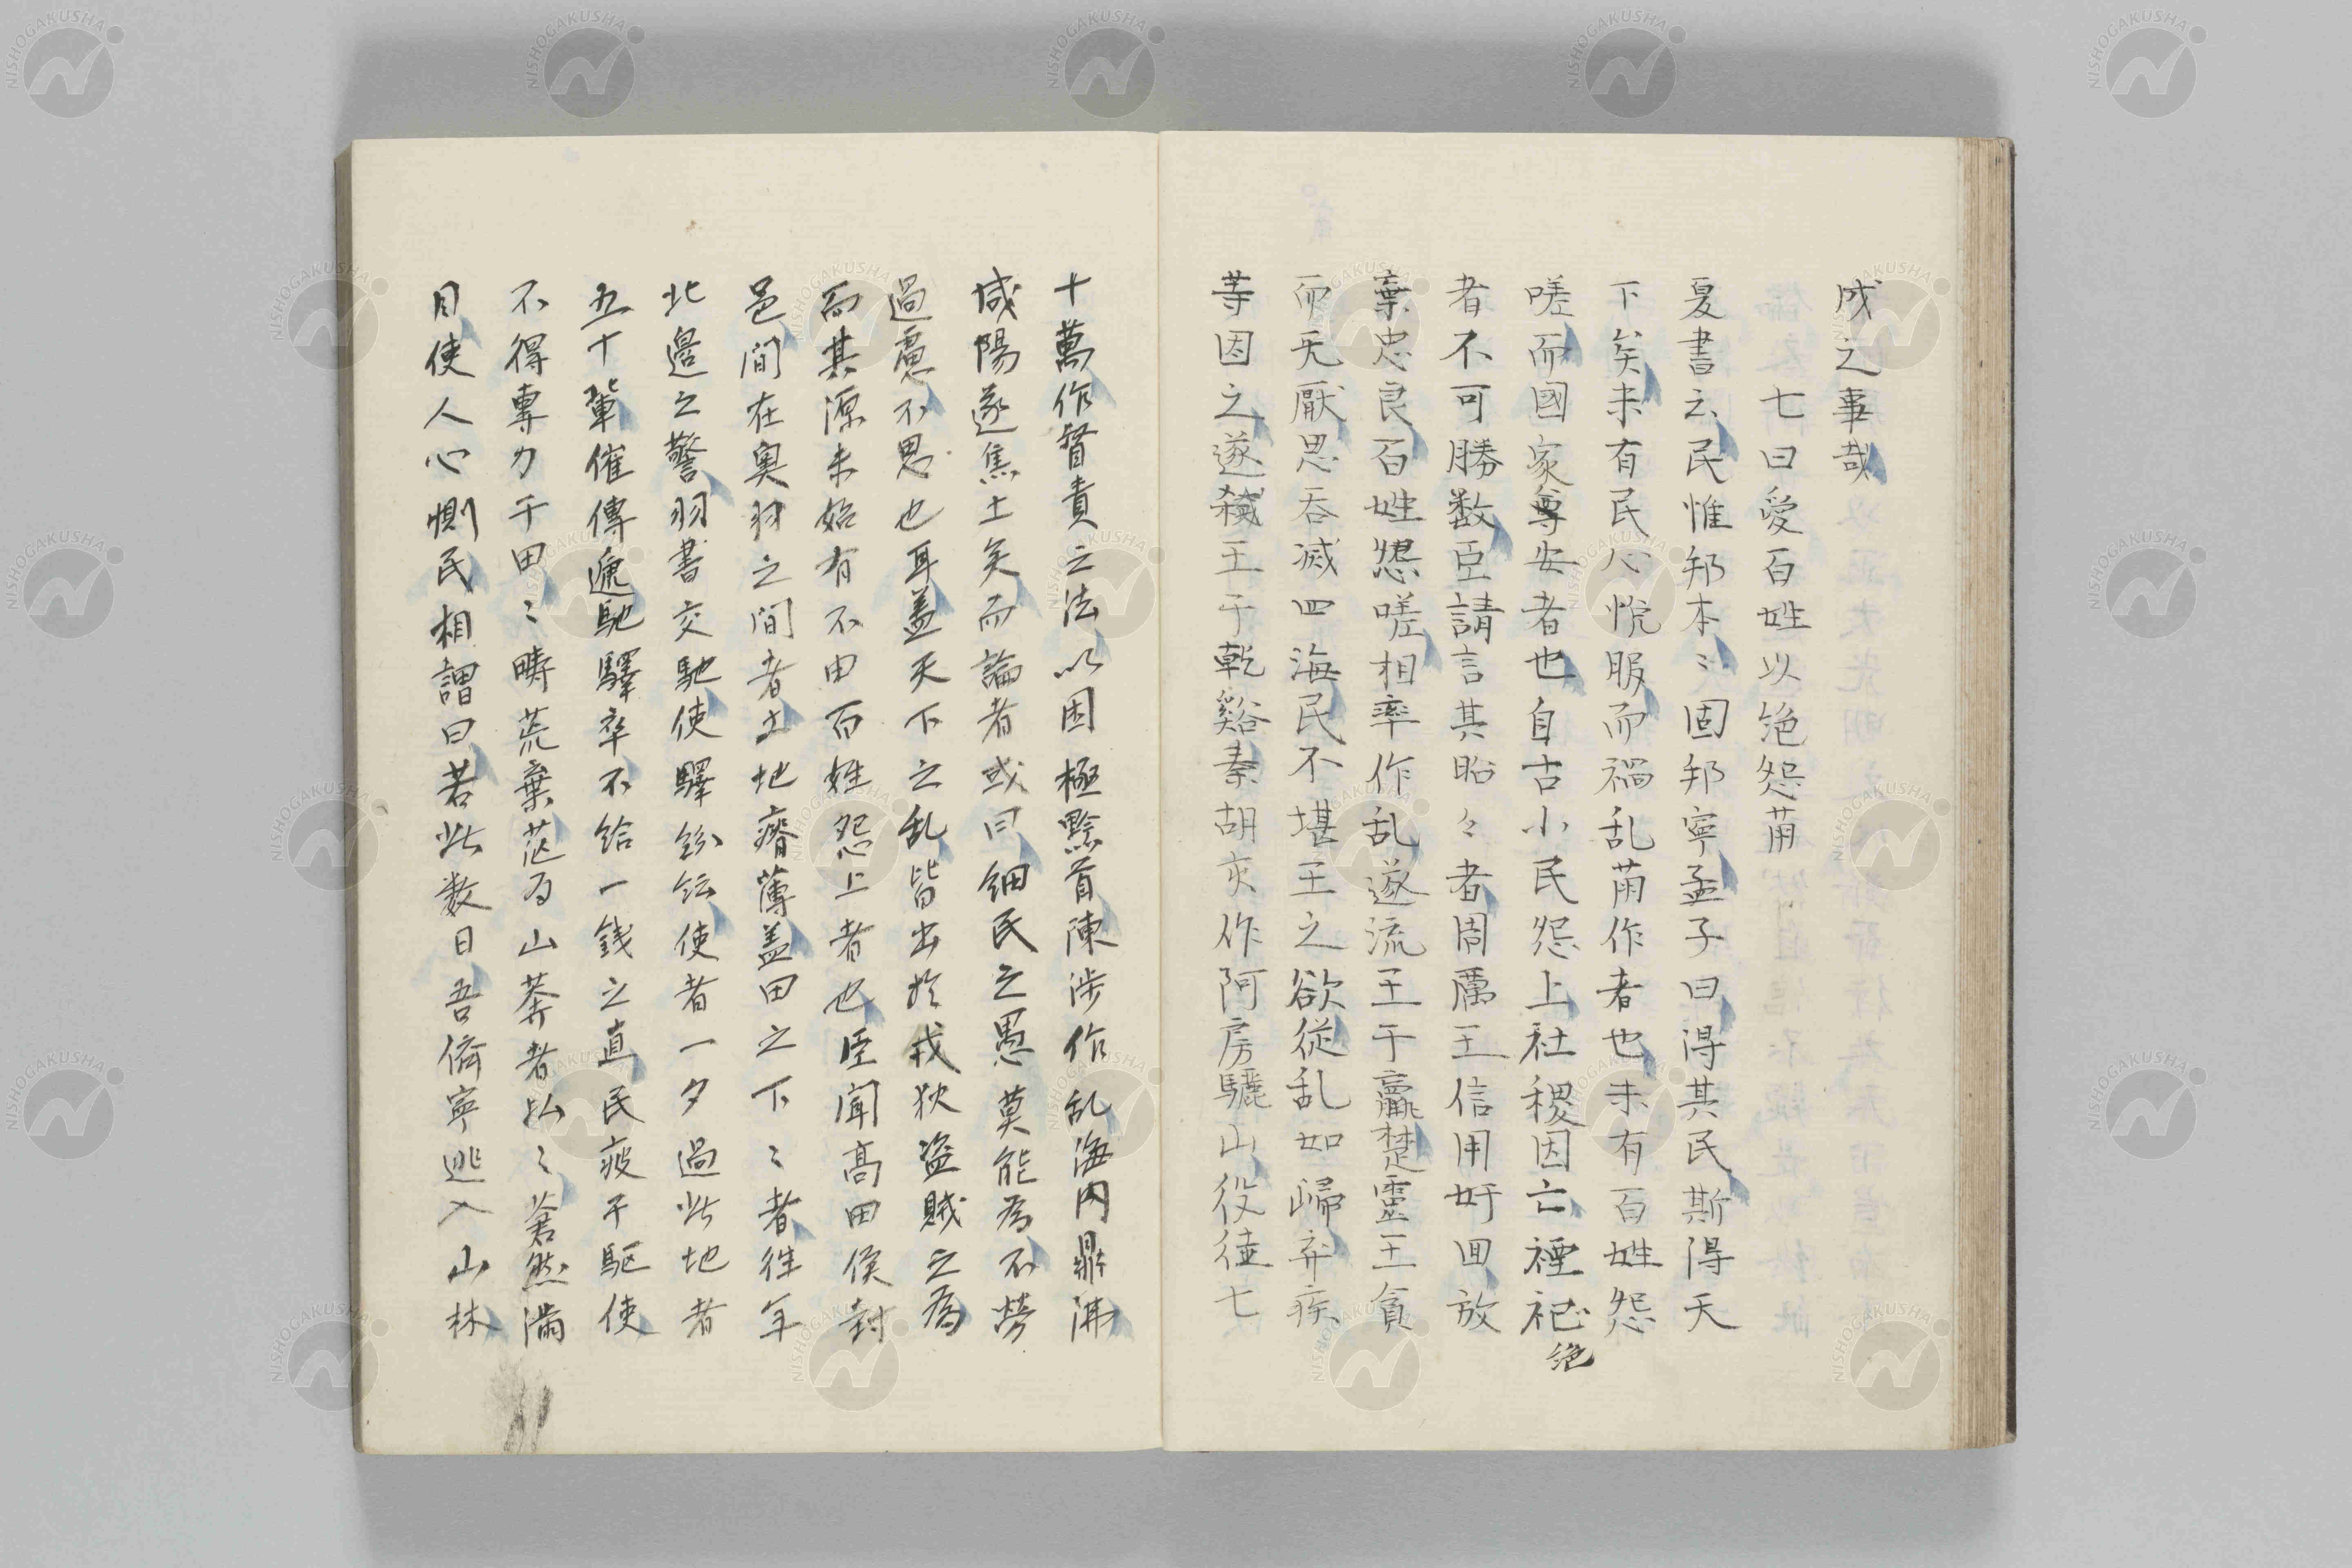 成之事哉
七曰愛百姓以絶怨萠
夏書云民惟邦本〻固邦寧孟子曰得其民斯得天
下矣未有民心悦服而禍乱萠作者也未有百姓怨
嗟而國家尊安者也自古小民怨上社稷因亡禋祀絶
者不可勝数臣請言其昭々者周厲王信用奸回放
棄忠良百姓怨嗟相率作乱遂流王于彘楚靈王貪
而无厭思吞滅四海民不堪王之欲從乱如歸弃疾
等因之遂弑王于乾谿秦胡亥作阿房驪山役徒七
十萬作督責之法以困極黔首陳渉作乱海内鼎沸
咸陽遂焦土矣而論者或曰細民之愚莫能為不勞
過慮不思也耳盖天下之乱皆出於戎狄盗賊之為
而其源未始有不由百姓怨上者也臣聞高田侯封
邑間在奥羽之間者土地瘠薄盖田之下〻者往年
北邉之警羽書交馳使驛紛紜使者一夕過此地者
五十輩催傳遞馳驛卒不給一錢之直民疲于駆使
不得專力于田〻疇荒棄茫為山莽者払〻蒼然満
目使人心惻民相謂曰若此数日吾儕寧逃入山林
NISHOGAKUSHA